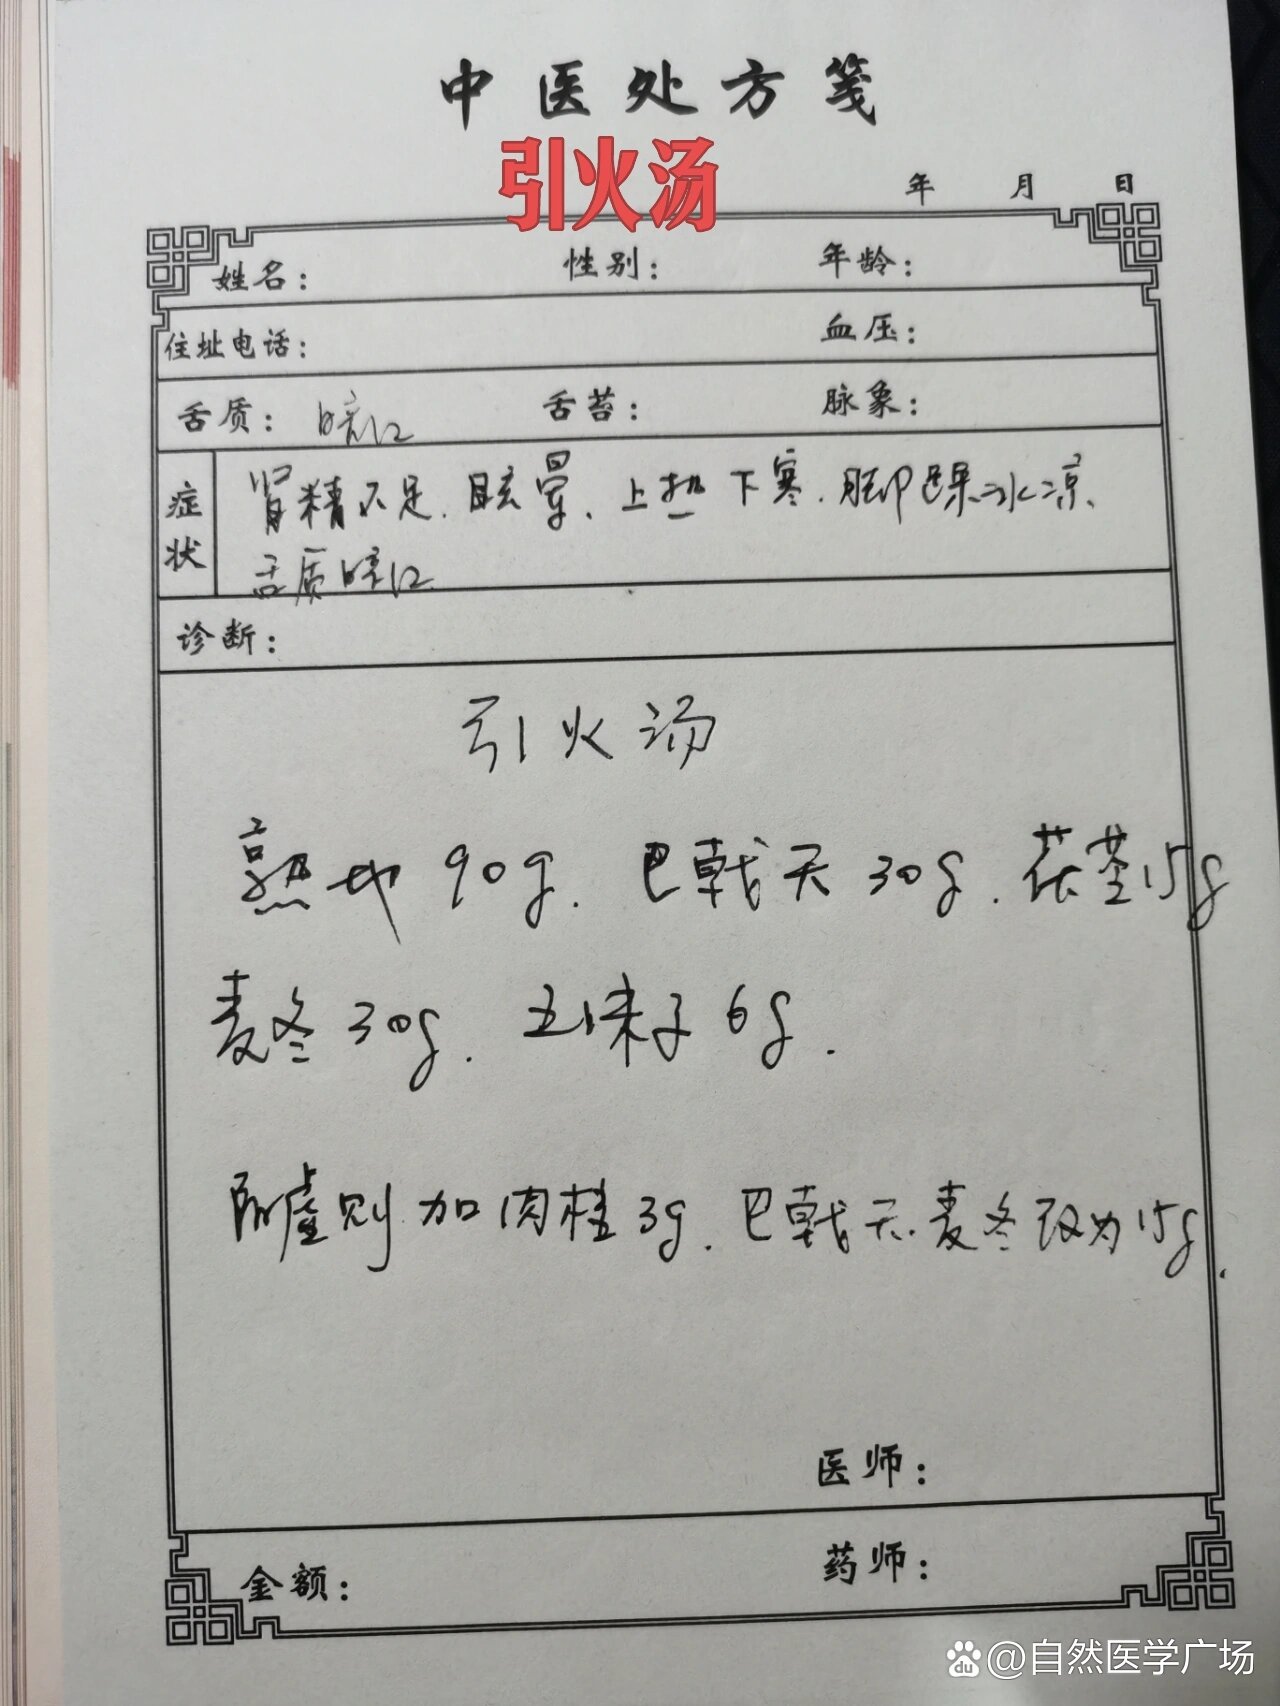 中医处方笺
引火汤
年 月 日
姓名： 性别： 年龄：
住址电话： 血压：
舌质：暗红 舌苔： 脉象：
症状 肾精不足、眩晕、上热下寒、脚踝冰凉、
舌质暗红
诊断：
引火汤
熟地90g、巴戟天30g、茯苓15g
麦冬30g、五味子6g.
阳虚则加肉桂3g、巴戟天、麦冬改为15g.
医师：
金额： 药师：
@自然医学广场